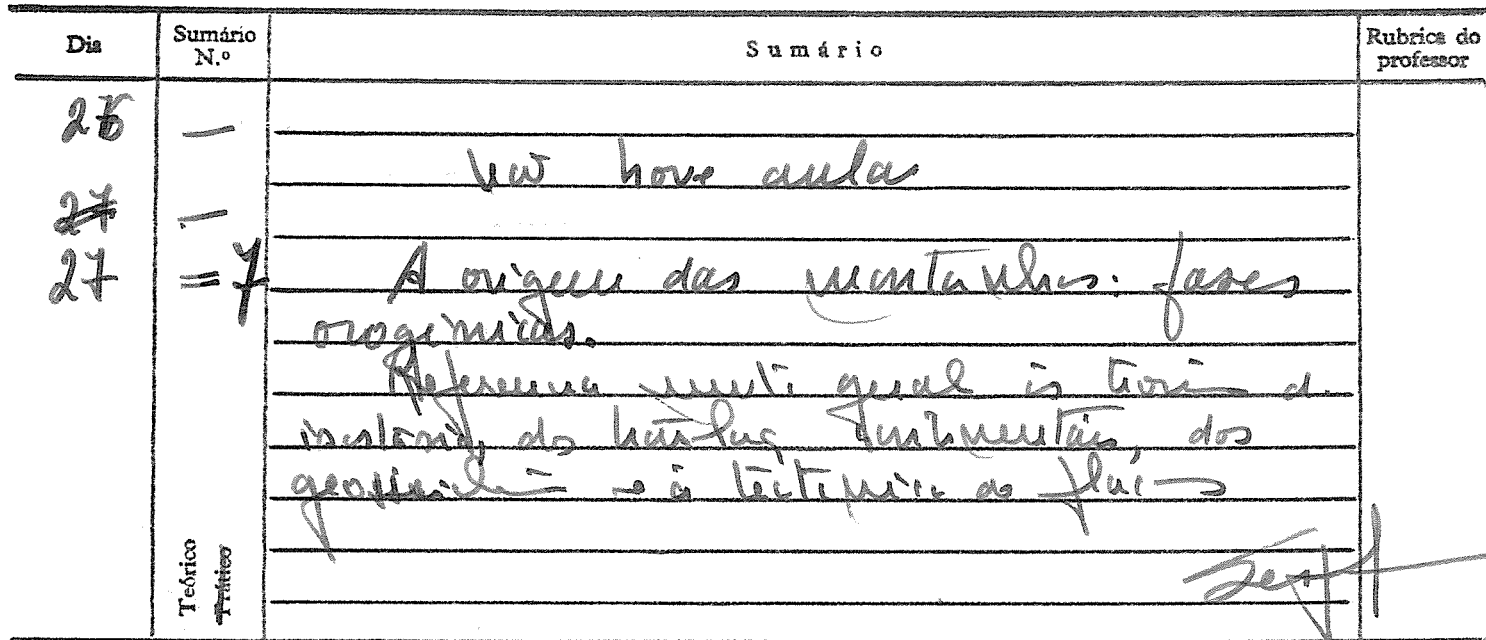 Dia Sumário N.º Sumário Rubrica do professor
26 —
Não houve aula
27 —
27 = 7 A origem das montanhas. fases
orogénicas.
Referência muito geral às teorias da
isostasia, da translação continentais, dos
geossinclin e à tectónica de placas
Teórico
Prático